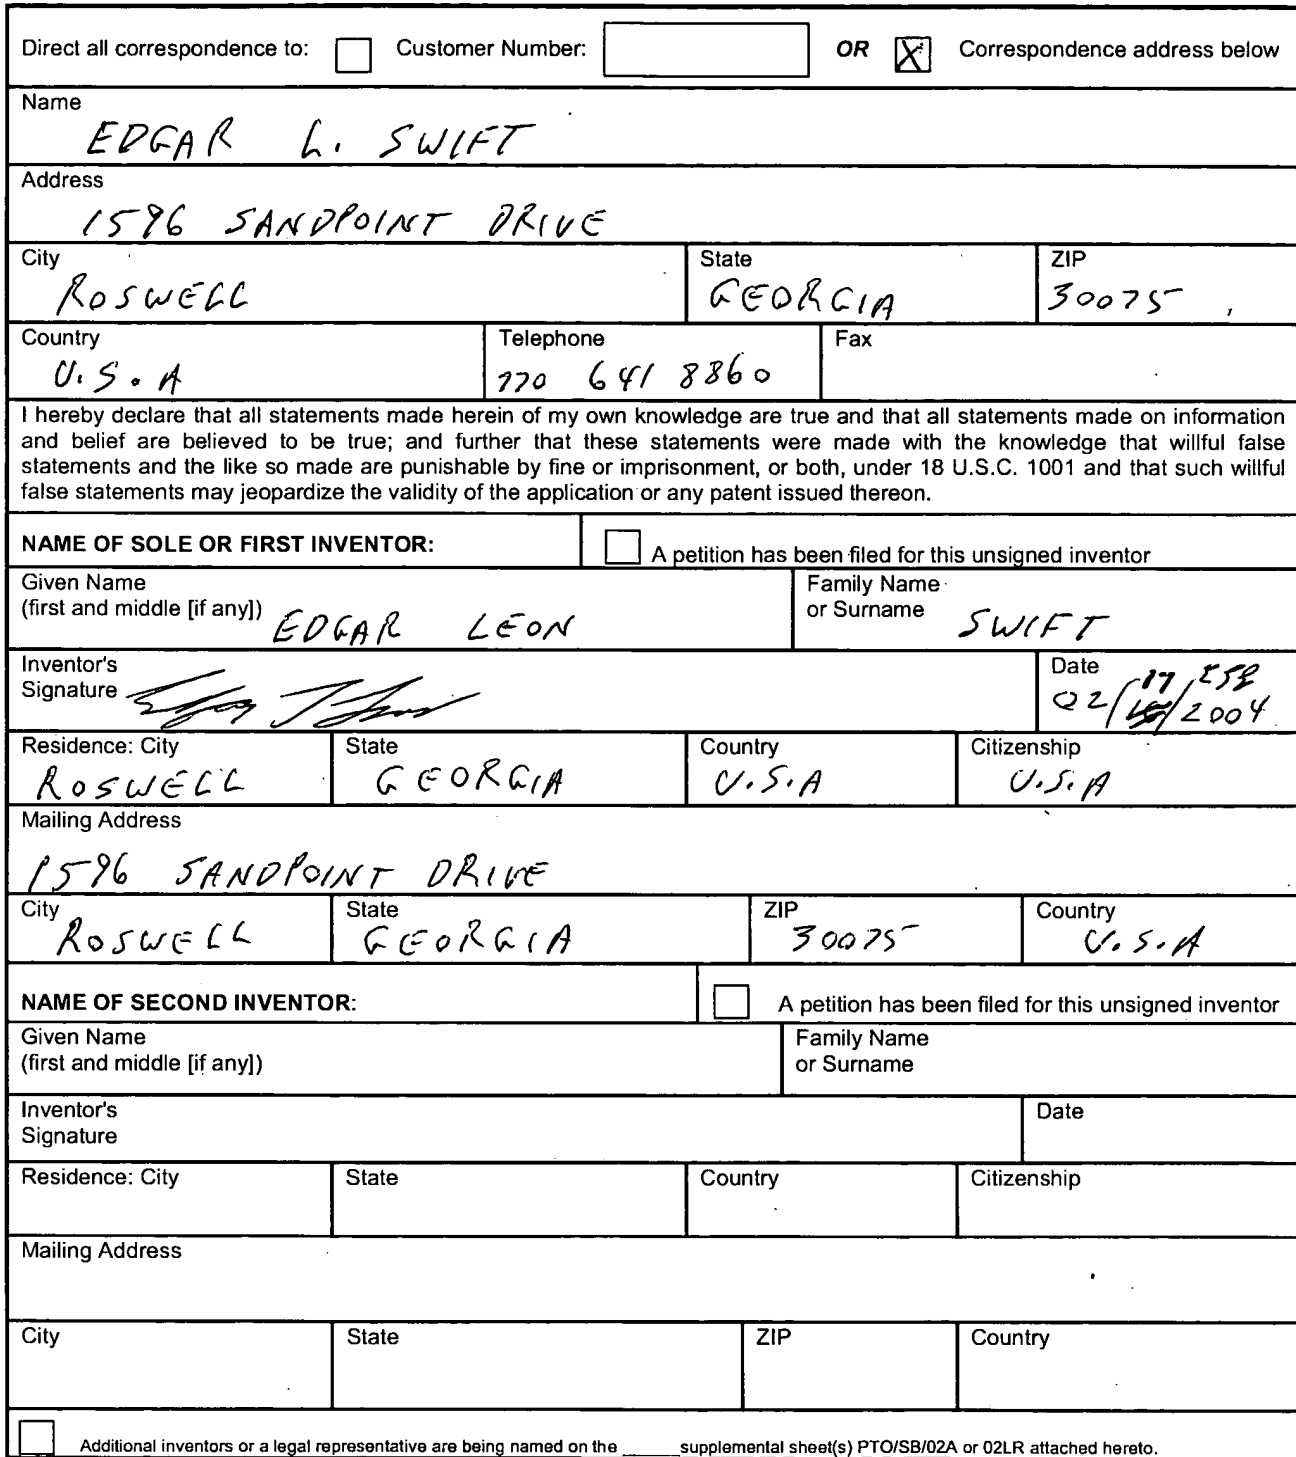 Direct all correspondence to: Customer Number: OR X Correspondence address below
Name
EDGAR L. SWIFT
Address
1596 SANDPOINT DRIVE
City State ZIP
ROSWELL GEORGIA 30075
Country Telephone Fax
U.S.A 770 641 8860
I hereby declare that all statements made herein of my own knowledge are true and that all statements made on information
and belief are believed to be true; and further that these statements were made with the knowledge that willful false
statements and the like so made are punishable by fine or imprisonment, or both, under 18 U.S.C. 1001 and that such willful
false statements may jeopardize the validity of the application or any patent issued thereon.
NAME OF SOLE OR FIRST INVENTOR: A petition has been filed for this unsigned inventor
Given Name Family Name
(first and middle [if any]) EDGAR LEON or Surname SWIFT
Inventor's Date
Signature 02/17/2004
Residence: City State Country Citizenship
ROSWELL GEORGIA U.S.A U.S.A
Mailing Address
1596 SANDPOINT DRIVE
City State ZIP Country
ROSWELL GEORGIA 30075 U.S.A
NAME OF SECOND INVENTOR: A petition has been filed for this unsigned inventor
Given Name Family Name
(first and middle [if any]) or Surname
Inventor's Date
Signature
Residence: City State Country Citizenship
Mailing Address
City State ZIP Country
Additional inventors or a legal representative are being named on the _____ supplemental sheet(s) PTO/SB/02A or 02LR attached hereto.